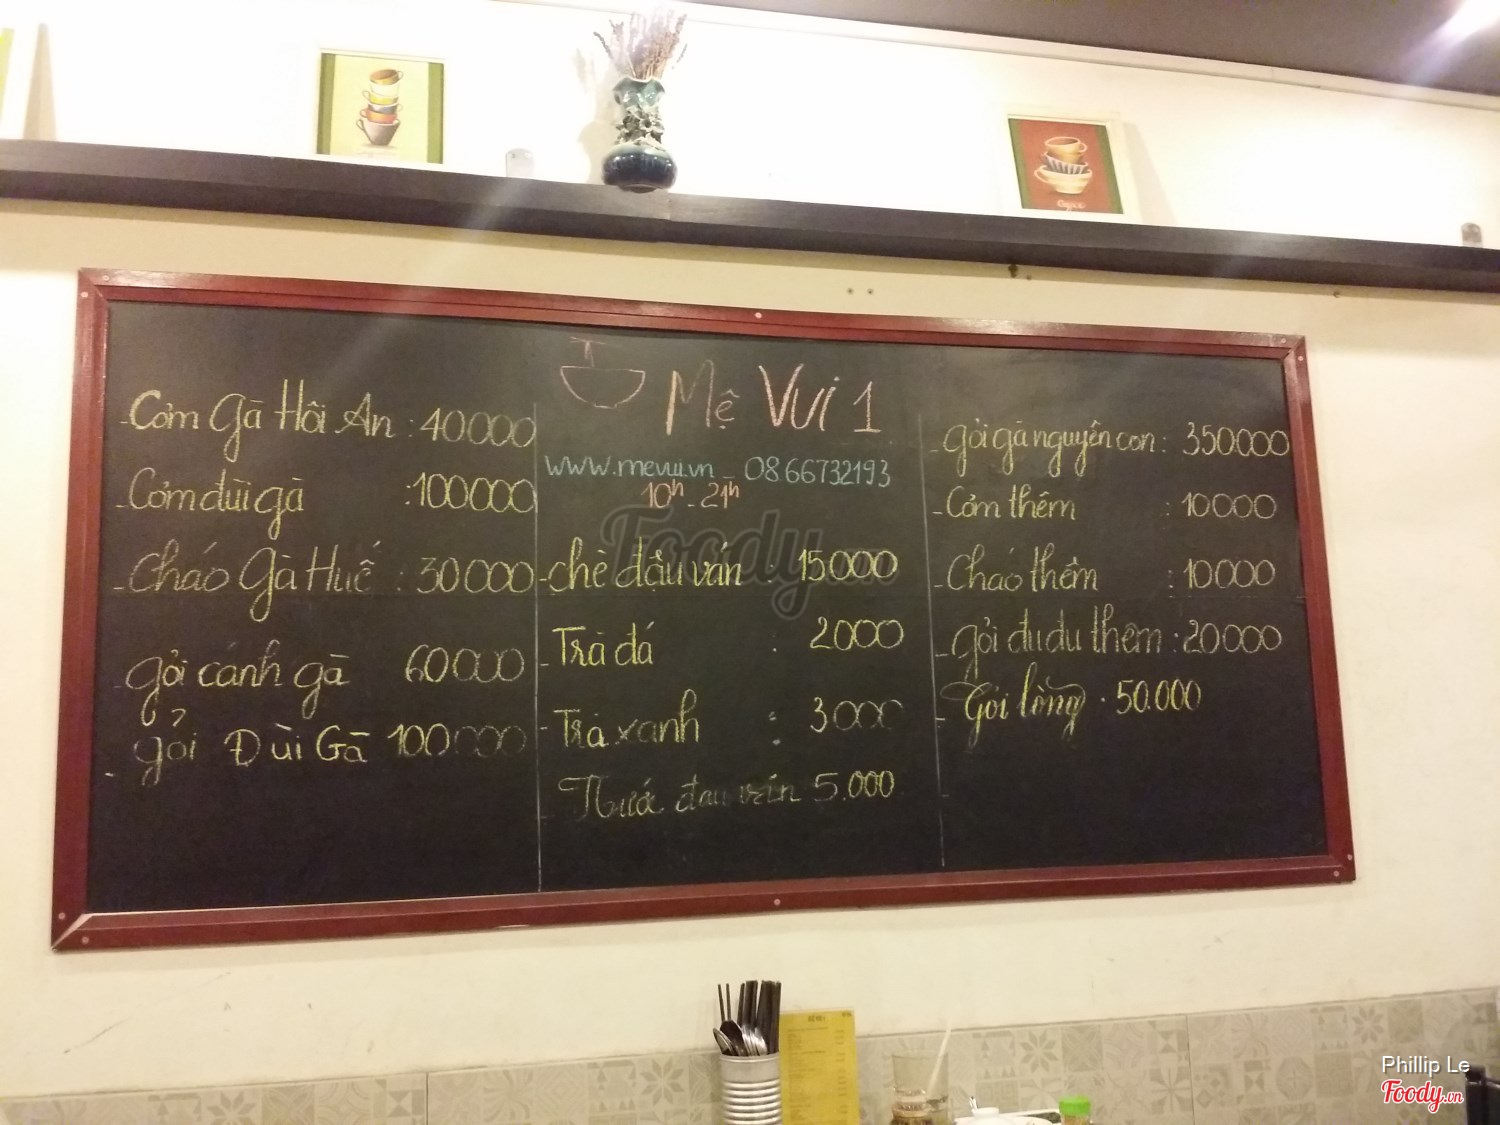 Mệ Vui 1
www.mevui.vn - 08.66732193
10h - 21h
- Cơm Gà Hội An : 40000
- Cơm đùi gà : 100000
- Cháo Gà Huế : 30000
- gỏi cánh gà 60000
- gỏi Đùi Gà 100000
- chè đậu ván : 15.000
- Trà đá : 2000
- Trà xanh : 3000
- Nước đau ván 5.000
- gỏi gà nguyên con : 350.000
- Cơm thêm : 10000
- Cháo thêm : 10000
- gỏi đu đủ thêm : 20000
- Gỏi lòng . 50.000
Foody
Phillip Le
Foody.vn